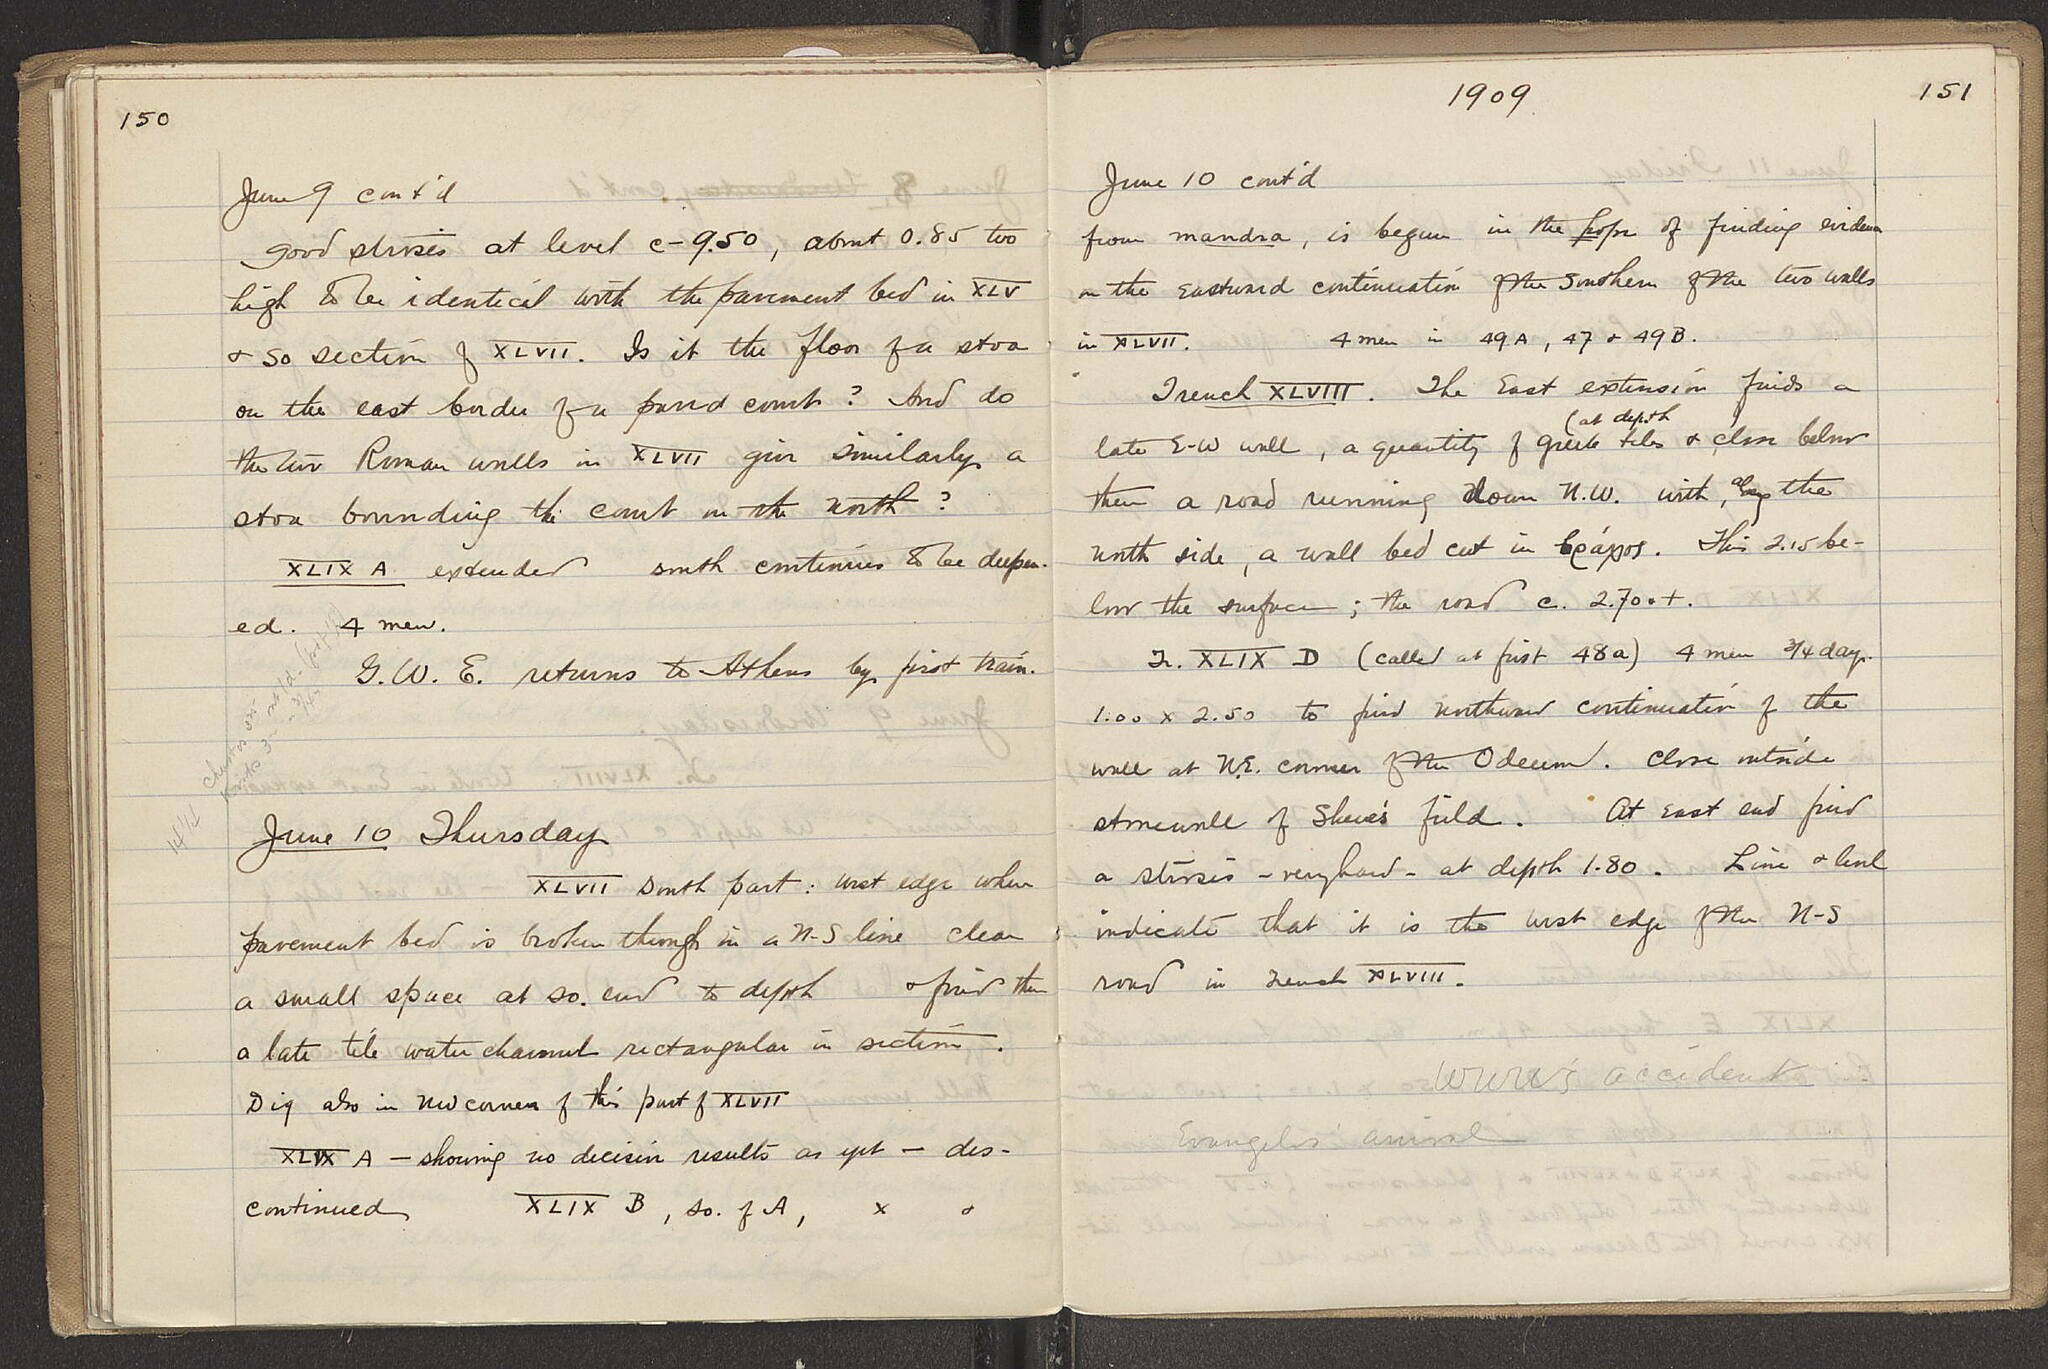 150
June 9 cont'd
good strosis at level c - 9.50, about 0.85 too
high to be identical with the pavement bed in XLV
& so section of XLVII. Is it the floor of a stoa
on the east border of a paved court? And do
the two Roman walls in XLVII give similarly a
stoa bounding the court on the north?
XLIX A extended south continues to be deepen-
ed. 4 men.
G. W. E. returns to Athens by first train.
June 10 Thursday
XLVII South part: west edge where
pavement bed is broken through in a N-S line clear
a small space at so. end to depth & find there
a late tile water channel rectangular in section.
Dig also in NW corner of this part of XLVII
XLIX A - showing no decisive results as yet - dis-
continued XLIX B, so. of A, x &
1909
151
June 10 cont'd
from mandra, is begun in the hope of finding evidence
on the eastward continuation of the Southern of the two walls
in XLVII. 4 men in 49A, 47 & 49B.
Trench XLVIII. The East extension finds a
(at depth
late E-W wall, a quantity of Greek tiles & close below
them a road running down N.W. with, along the
north side, a wall bed cut in βράχος. This 2.15 be-
low the surface; the road c. 2.70 +.
Tr. XLIX D (called at first 48a) 4 men 3/4 day.
1.00 x 2.50 to find northward continuation of the
wall at N.E. corner of the Odeum. Close outside
stonewall of Sheve's field. At East end find
a strosis - very hard - at depth 1.80. Line & level
indicate that it is the west edge of the N-S
road in trench XLVIII.
accident
Evangelos' arrival